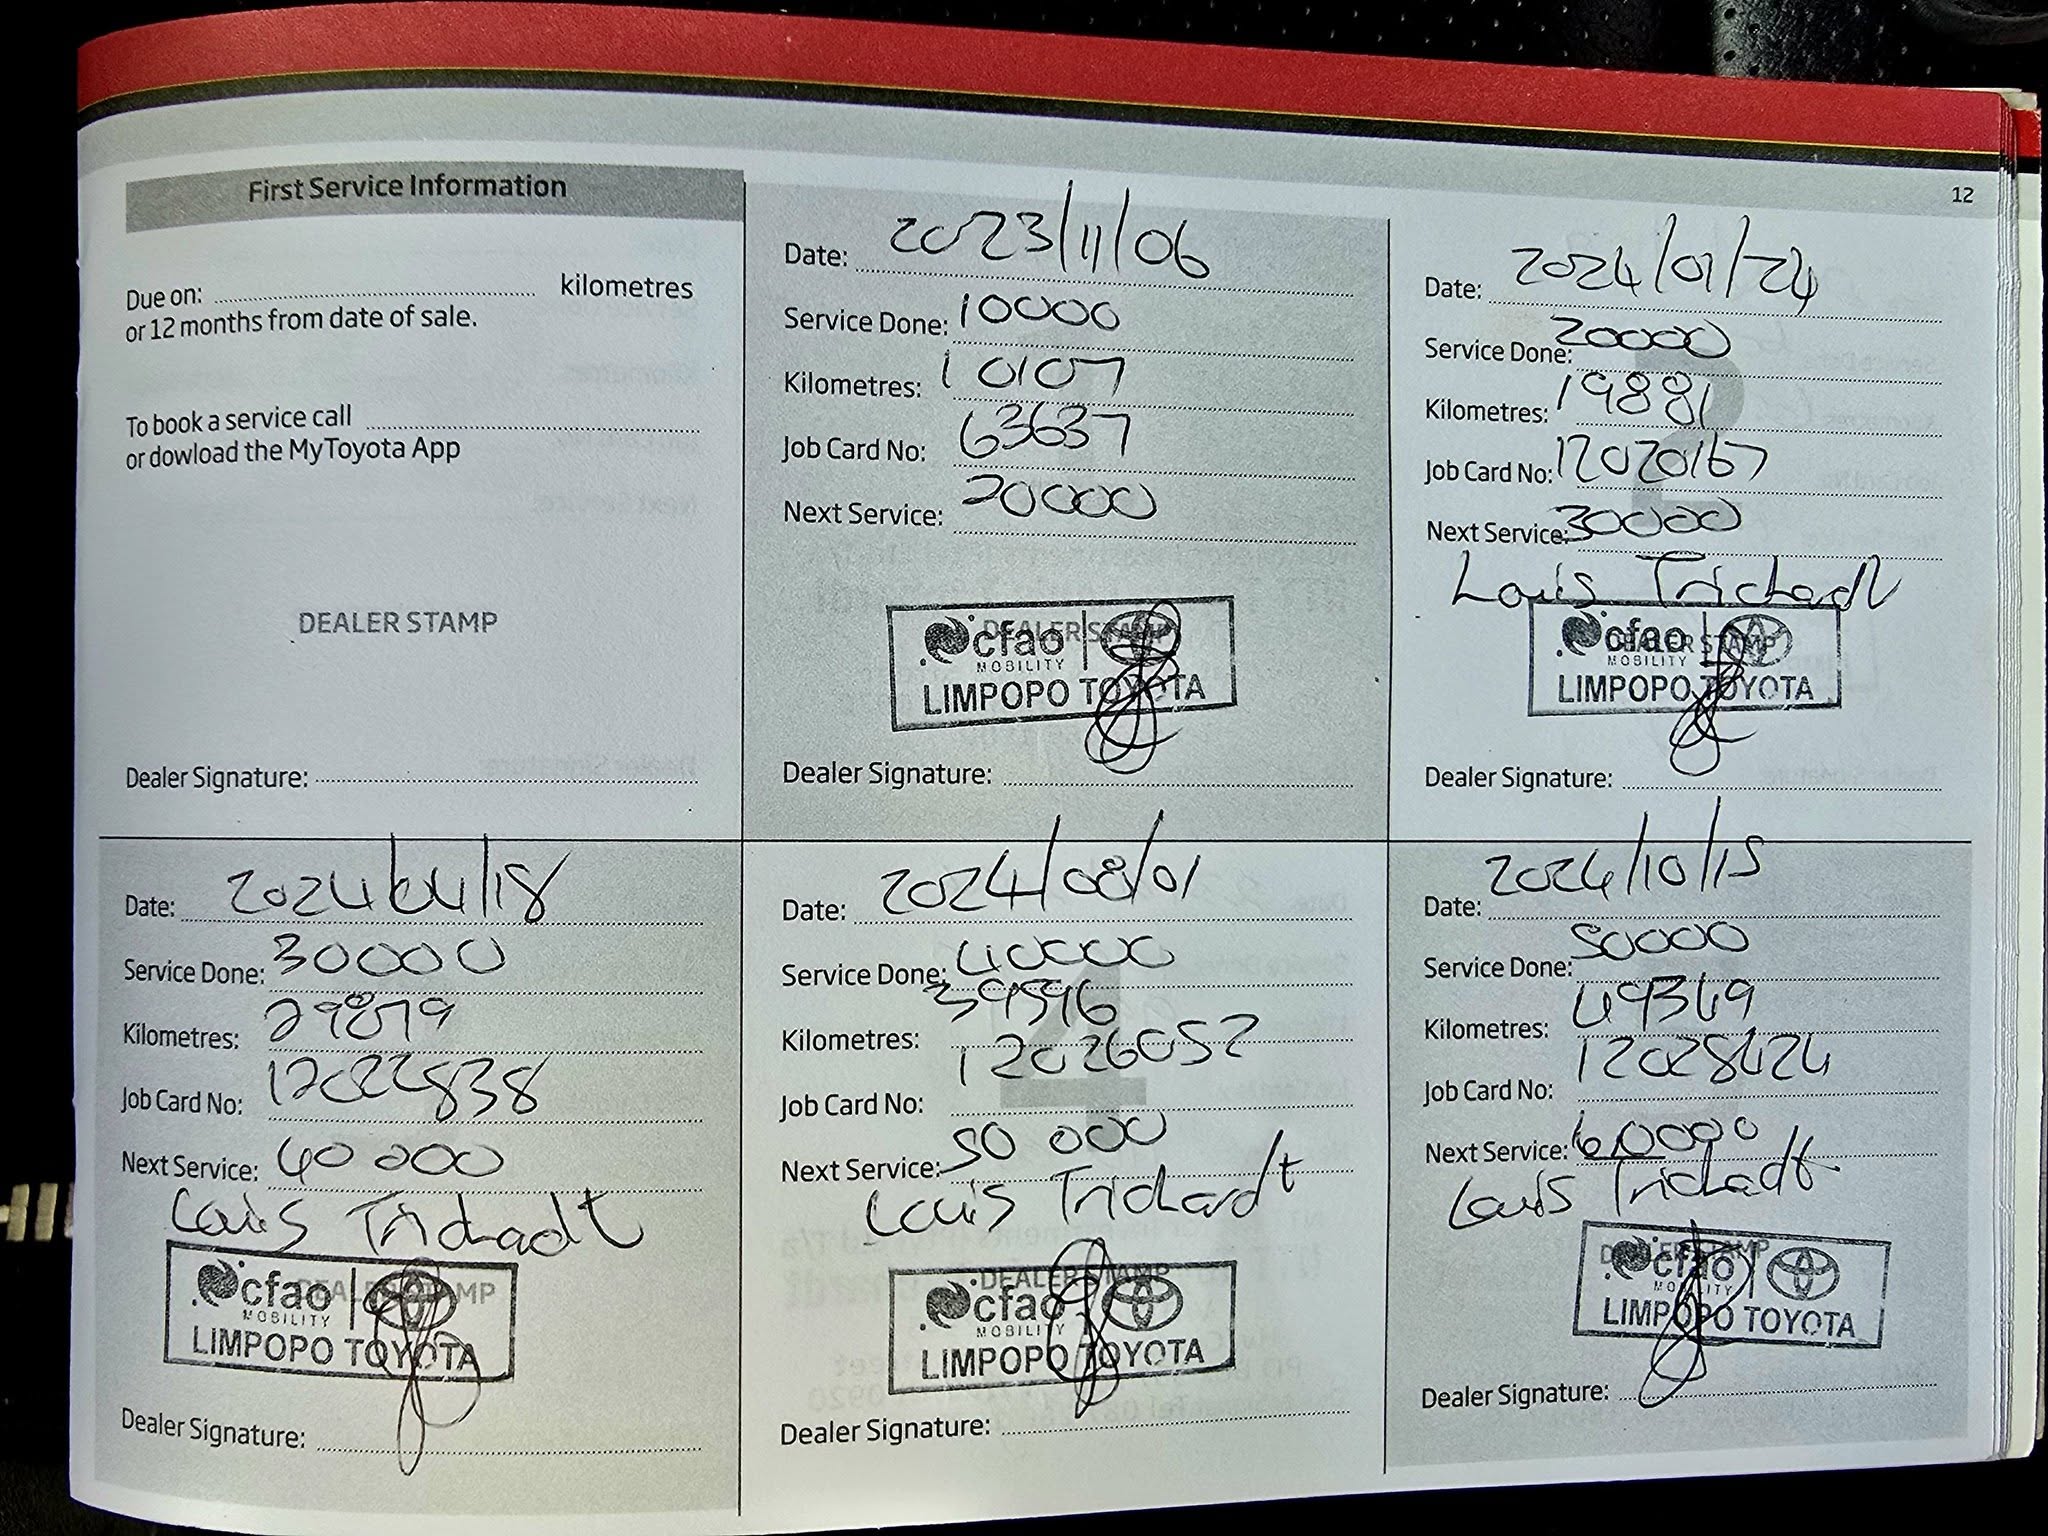 12
First Service Information
Due on: kilometres
or 12 months from date of sale.
To book a service call
or dowload the MyToyota App
DEALER STAMP
Dealer Signature:
Date: 2023/11/06
Service Done: 10000
Kilometres: 10107
Job Card No: 63637
Next Service: 20000
DEALER STAMP
cfao
MOBILITY
LIMPOPO TOYOTA
Dealer Signature:
Date: 2024/01/24
Service Done: 20000
Kilometres: 19881
Job Card No: 12020167
Next Service: 30000
Louis Trichadt
DEALER STAMP
cfao
MOBILITY
LIMPOPO TOYOTA
Dealer Signature:
Date: 2024/04/18
Service Done: 30000
Kilometres: 29879
Job Card No: 12022838
Next Service: 40 000
Louis Trichadt
DEALER STAMP
cfao
MOBILITY
LIMPOPO TOYOTA
Dealer Signature:
Date: 2024/08/01
Service Done: 40000
Kilometres: 39596
Job Card No: 12026052
Next Service: 50 000
Louis Trichardt
DEALER STAMP
cfao
MOBILITY
LIMPOPO TOYOTA
Dealer Signature:
Date: 2024/10/15
Service Done: 50000
Kilometres: 49349
Job Card No: 12028424
Next Service: 60000
Louis Trichadt
DEALER STAMP
cfao
MOBILITY
LIMPOPO TOYOTA
Dealer Signature: